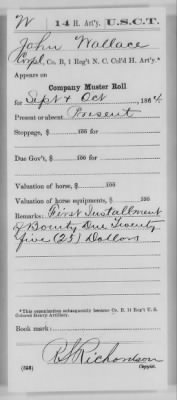 W 14 H. Art'y. U.S.C.T.
John Wallace
Corpl, Co. B, 1 Reg't N. C. Col'd H. Art'y.*
Appears on
Company Muster Roll
for Sept & Oct, 1864.
Present or absent Present
Stoppage, $ 100 for
Due Gov't, $ 100 for
Valuation of horse, $ 100
Valuation of horse equipments, $ 100
Remarks: First Installment
of Bounty Due Twenty
five (25) Dollars
*This organization subsequently became Co. B, 14 Reg't U. S.
Colored Heavy Artillery.
Book mark:
R Richardson
(358) Copyist.